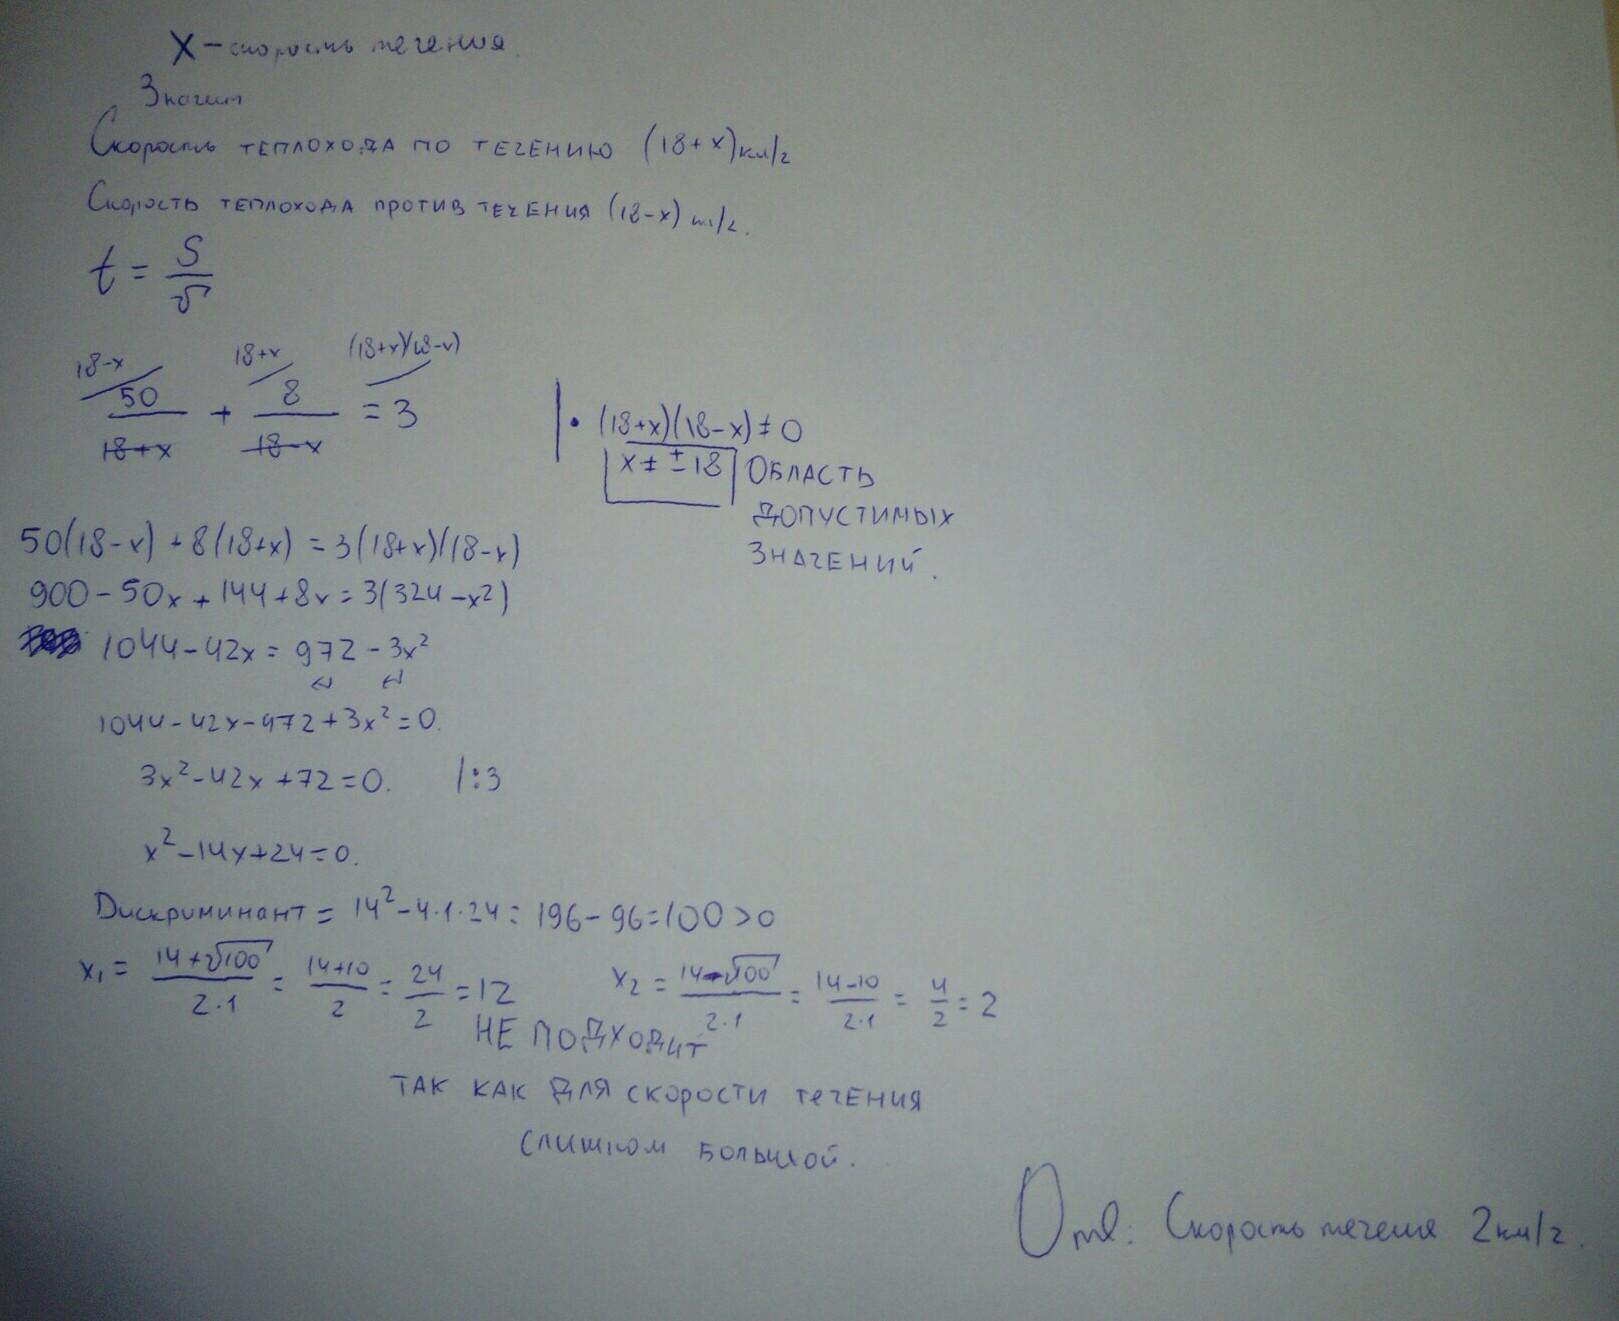 X – скорость течения.
Значит
Скорость теплохода по течению (18+x) км/ч
Скорость теплохода против течения (18-x) км/ч.
t = S/v
18-x 18+x (18+x)(18-x)
50/(18+x) + 8/(18-x) = 3
• (18+x)(18-x) ≠ 0
x ≠ ±18 Область
допустимых
значений.
50(18-x) + 8(18+x) = 3(18+x)(18-x)
900 - 50x + 144 + 8x = 3(324 - x²)
1044 - 42x = 972 - 3x²
1044 - 42x - 972 + 3x² = 0.
3x² - 42x + 72 = 0. |:3
x² - 14x + 24 = 0.
Дискриминант = 14² - 4·1·24 = 196 - 96 = 100 > 0
x₁ = (14+√100)/(2·1) = (14+10)/2 = 24/2 = 12 x₂ = (14-√100)/(2·1) = (14-10)/(2·1) = 4/2 = 2
не подходит
так как для скорости течения
слишком большой.
Отв: Скорость течения 2км/ч.